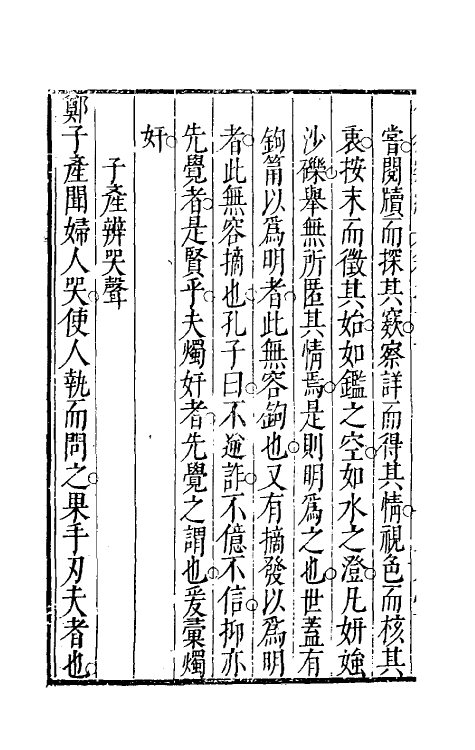 嘗閱牘而探其竅察詳而得其情視色而核其
衷按末而徵其始如鑑之空如水之澄凡妍媸
沙礫舉無所匿其情焉是則明爲之也世蓋有
鉤箝以爲明者此無容鉤也又有摘發以爲明
者此無容摘也孔子曰不逆詐不億不信抑亦
先覺者是賢乎夫燭奸者先覺之謂也爰彙燭
奸
子產辨哭聲
鄭子產聞婦人哭使人執而問之果手刃夫者也